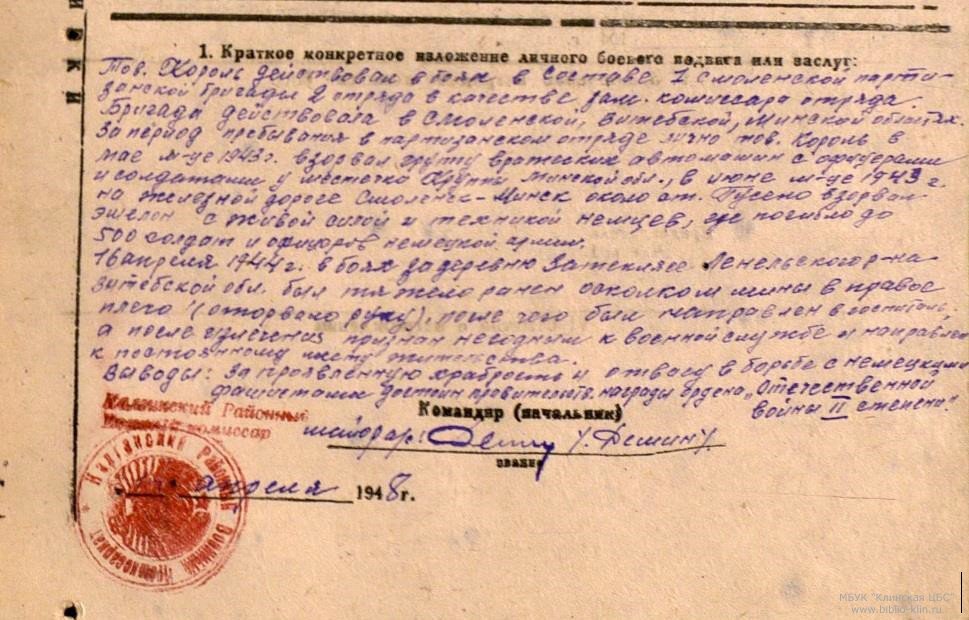 1. Краткое конкретное изложение личного боевого подвига или заслуг:
Тов. Король действовал в боях в составе 1 смоленской парти-
занской бригады 2 отряда в качестве зам. комиссара отряда.
Бригада действовала в Смоленской, Витебской, Минской областях.
За период пребывания в партизанском отряде лично тов. Король в
мае м-це 1943 г. взорвал группу вражеских автомашин с офицерами
и солдатами у местечка Крупки Минской обл., в июне м-це 1943 г.
на железной дороге Смоленск-Минск около ст. Гусено взорвал
эшелон с живой силой и техникой немцев, где погибло до
500 солдат и офицеров немецкой армии.
16 апреля 1944 г. в боях за деревню Лепельского р-на
Витебской обл. был тяжело ранен осколком мины в правое
плечо (оторвано руку), после чего был направлен в госпиталь,
а после излечения признан негодным к военной службе и направлен
к постоянному месту жительства.
Выводы: За проявленную храбрость и отвагу в борьбе с немецкими
фашистами достоин правительств. награды ордена „Отечественной
войны II степени".
Районный
Военный комиссар
Командир (начальник)
майор а/с /Демин/
звание
апреля 1948 г.
Районный Военный Комиссариат
МБУК "Клинская ЦБС"
www.biblio-klin.ru